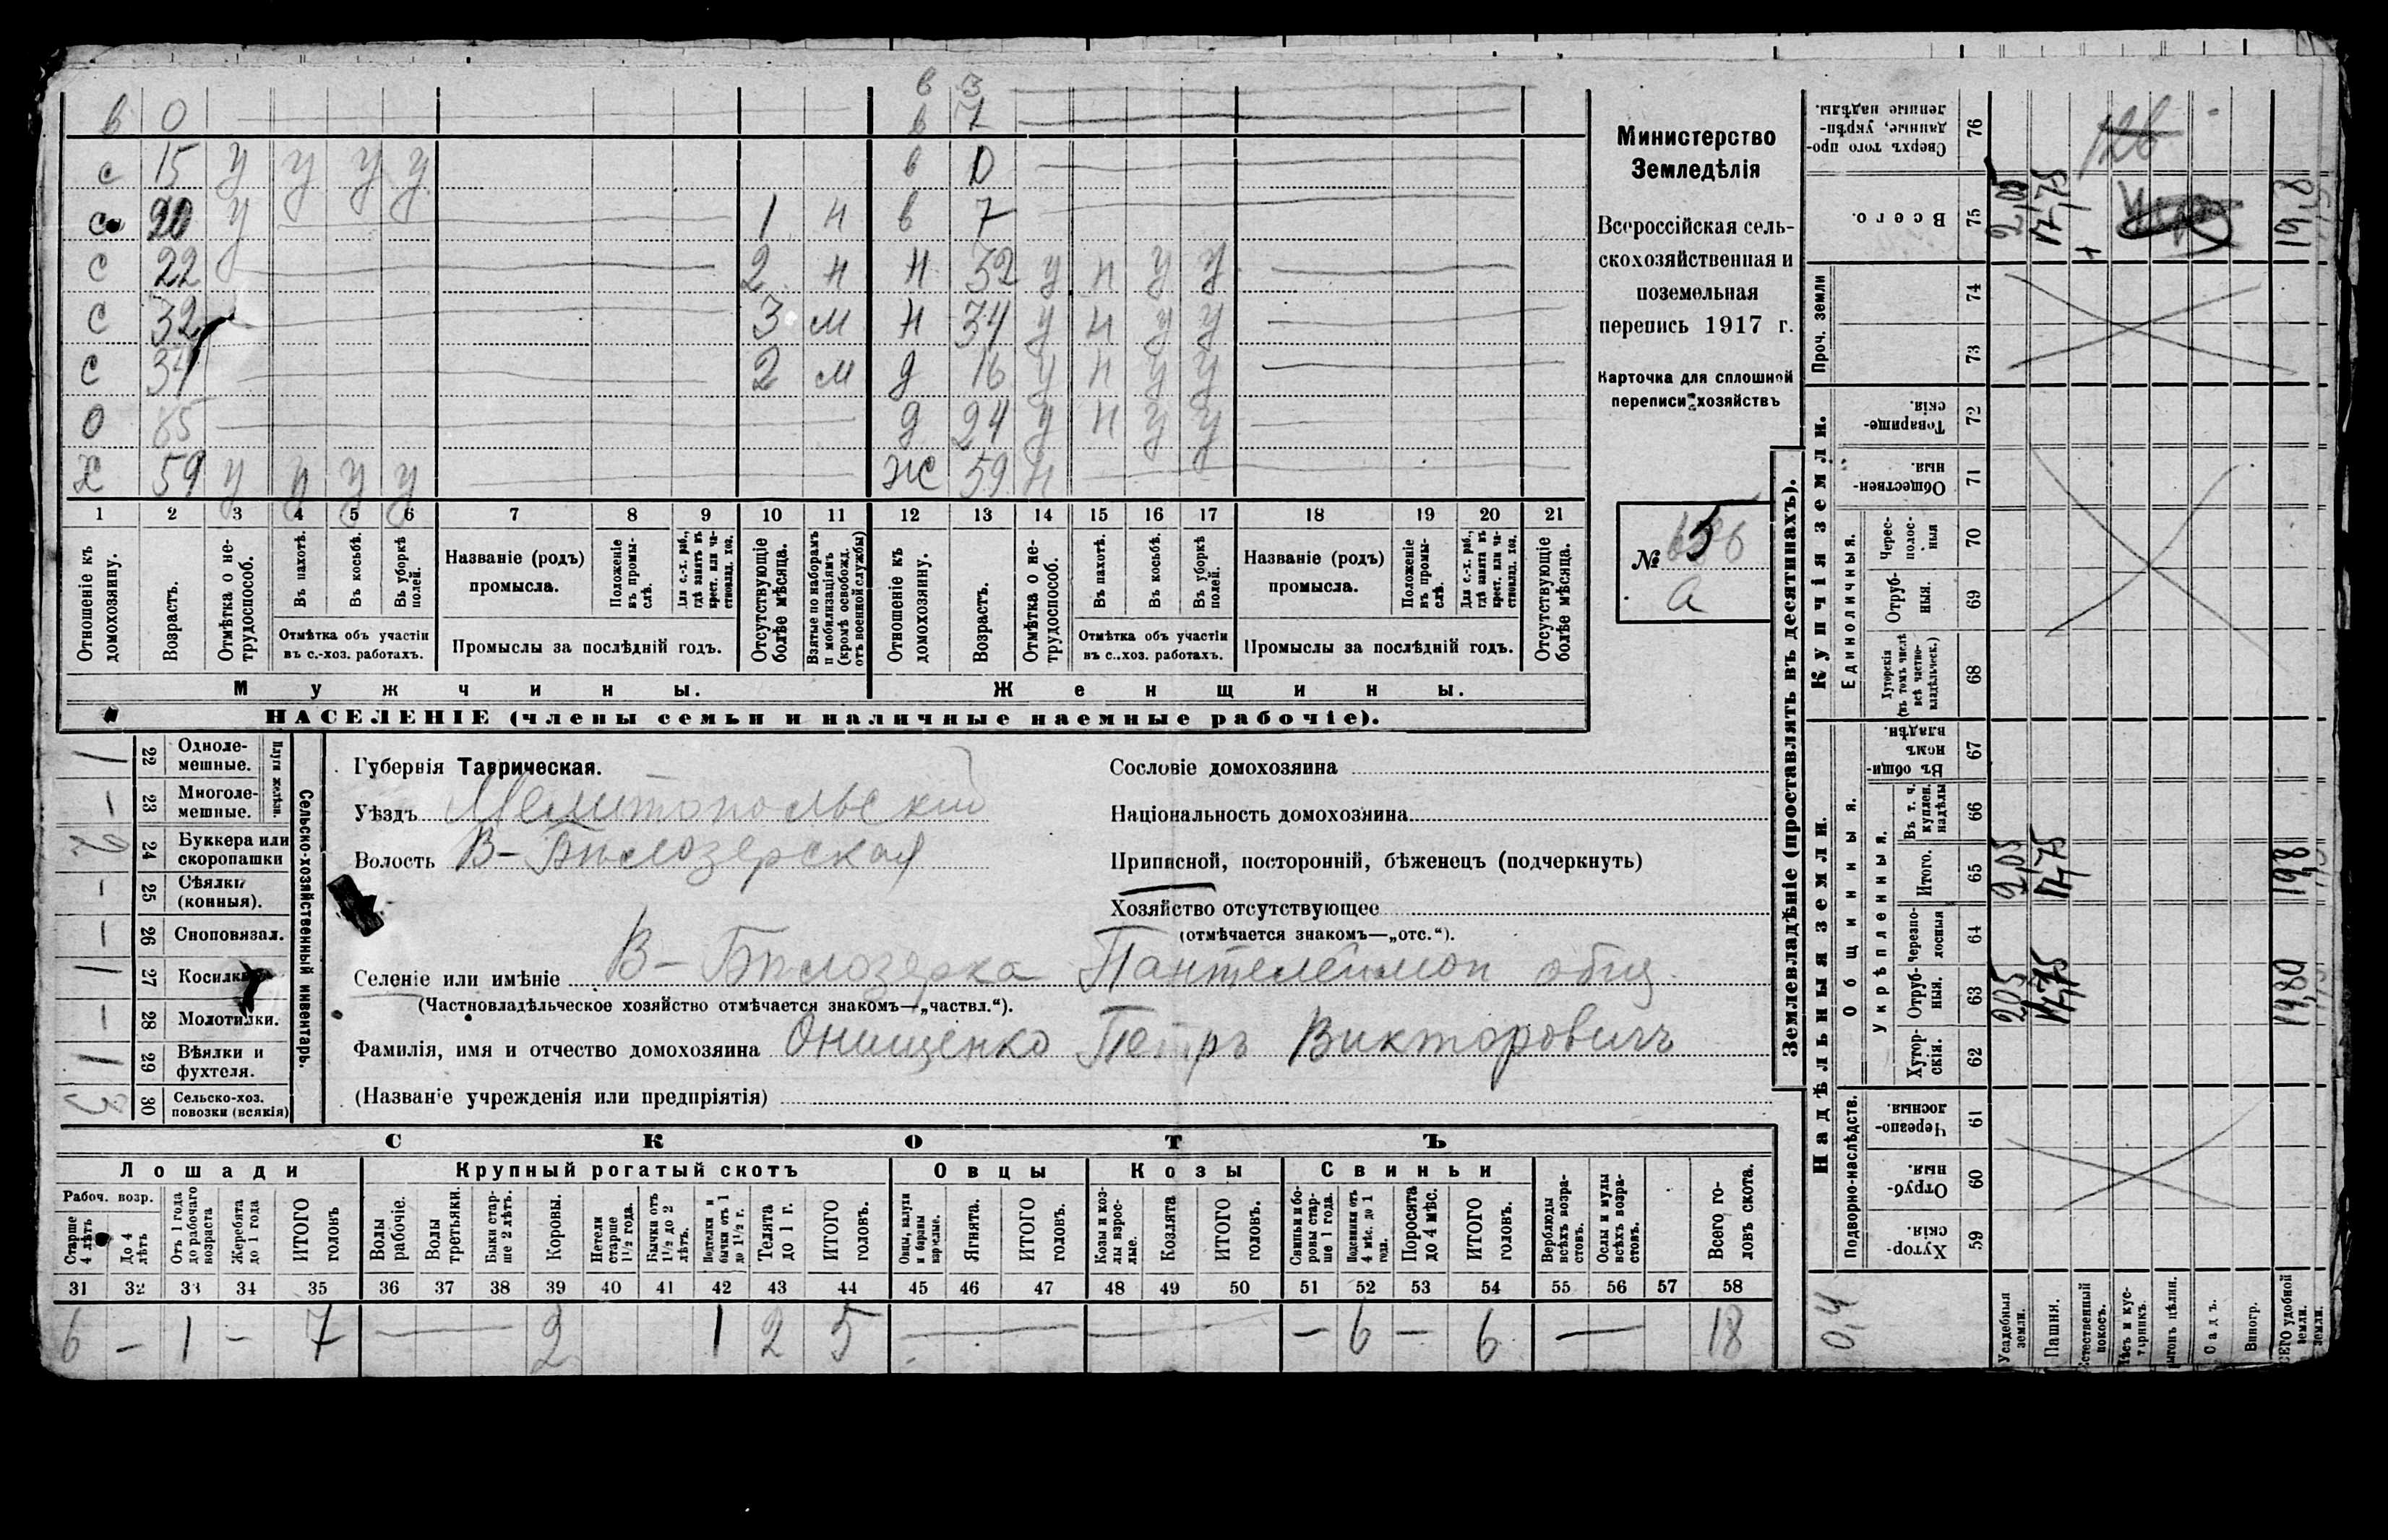 в 3
в 0 в 1
с 15 у у у у в 0
с 20 у 1 н в 7
с 22 2 н н 32 у н у у
с 32 3 м н 34 у н у у
с 34 2 м д 16 у н у у
о 85 д 24 у н у у
х 59 у у у у ж 59 н
1 2 3 4 5 6 7 8 9 10 11 12 13 14 15 16 17 18 19 20 21
Отношеніе къ домохозяину.
Возрастъ.
Отмѣтка о не-трудоспособ.
Въ пахотѣ.
Въ косьбѣ.
Въ уборкѣ полей.
Отмѣтка объ участіи
въ с.-хоз. работахъ.
Названіе (родъ)
промысла.
Положеніе въ промы-слѣ.
Для с.-х. раб., гдѣ занятъ въ крест. или ча-стновлад. хоз.
Промыслы за послѣдній годъ.
Отсутствующіе болѣе мѣсяца.
Взятые по наборамъ и мобилизаціямъ (кромѣ освобожд. отъ военной службы)
Отношеніе къ домохозяину.
Возрастъ.
Отмѣтка о не-трудоспособ.
Въ пахотѣ.
Въ косьбѣ.
Въ уборкѣ полей.
Отмѣтка объ участіи
въ с..хоз. работахъ.
Названіе (родъ)
промысла.
Положеніе въ промы-слѣ.
Для с.-х. раб., гдѣ занята въ крест. или ча-стновлад. хоз.
Промыслы за послѣдній годъ.
Отсутствующіе болѣе мѣсяца.
Мужчины. Женщины.
НАСЕЛЕНІЕ (члены семьи и наличные наемные рабочіе).
Министерство
Земледѣлія
Всероссійская сель-
скохозяйственная и
поземельная
перепись 1917 г.
Карточка для сплошной
переписи хозяйствъ
№ 5
а
Сельско-хозяйственный инвентарь.
Плуги желѣзн.
1 22 Одноле-мешные.
— 23 Многоле-мешные.
2 24 Буккера или скоропашки
— 25 Сѣялки (конныя).
— 26 Сноповязал.
1 27 Косилки
— 28 Молотилки.
1 29 Вѣялки и фухтеля.
3 30 Сельско-хоз. повозки (всякія)
Губернія Таврическая.
Уѣздъ Мелитопольский
Волость В-Бѣлозерская
Сословіе домохозяина
Національность домохозяина
Приписной, посторонній, бѣженецъ (подчеркнуть)
Хозяйство отсутствующее
(отмѣчается знакомъ—„отс.“).
Селеніе или имѣніе В-Бѣлозерка Пантелеймон общ.
(Частновладѣльческое хозяйство отмѣчается знакомъ—„частвл.“).
Фамилія, имя и отчество домохозяина Онищенко Петръ Викторовичъ
(Названіе учрежденія или предпріятія)
СКОТЪ
Лошади Крупный рогатый скотъ Овцы Козы Свиньи
Рабоч. возр.
Старше 4 лѣтъ
До 4 лѣтъ
Отъ 1 года до рабочаго возраста
Жеребята до 1 года
ИТОГО головъ
Волы рабочіе.
Волы третьяки.
Быки стар-ше 2 лѣтъ.
Коровы.
Нетели старше 1½ года.
Бычки отъ 1½ до 2 лѣтъ.
Подтелки и бычки отъ 1 до 1½ г.
Телята до 1 г.
ИТОГО головъ.
Овцы, валухи и бараны взрослые.
Ягнята.
ИТОГО головъ.
Козы и коз-лы взрос-лые.
Козлята
ИТОГО головъ.
Свиньи и бо-ровы стар-ше 1 года.
Подсвинки отъ 4 мѣс. до 1 года.
Поросята до 4 мѣс.
ИТОГО головъ.
Верблюды всѣхъ возра-стовъ.
Ослы и мулы всѣхъ возра-стовъ.
Всего го-ловъ скота.
31 32 33 34 35 36 37 38 39 40 41 42 43 44 45 46 47 48 49 50 51 52 53 54 55 56 57 58
6 — 1 — 7 — 2 1 2 5 — — — 6 — 6 — 18
Землевладѣніе (проставлять въ десятинахъ).
Надѣльныя земли. Купчія земли. Проч. земли
Подворно-наслѣдств.
Общинныя.
Укрѣпленныя.
Единоличныя.
Хутор-скія. 59
Отруб-ныя. 60
Черезпо-лосныя 61
Хутор-скія. 62
Отруб-ныя. 63 2,05 17,75 19,80
Черезпо-лосныя 64
Итого. 65 2,05 17,75 19,8
Въ т. ч. куплен. надѣлы 66
Въ общин-номъ владѣн. 67
Хуторскія (въ томъ числѣ всѣ частно-владѣльческ.) 68
Отруб-ныя. 69
Черес-полос-ныя 70
Обществен-ныя. 71
Товарище-скія. 72
73
74
Всего. 75 2,05 17,75 19,8
Сверхъ того про-данные, укрѣп-ленные надѣлы. 76
126
0,4
Усадебныя земли.
Пашня.
Естественный покосъ.
Лѣсъ и кус-тарникъ.
Выгонъ цѣлин.
Садъ.
Виногр.
ВСЕГО удобной земли.